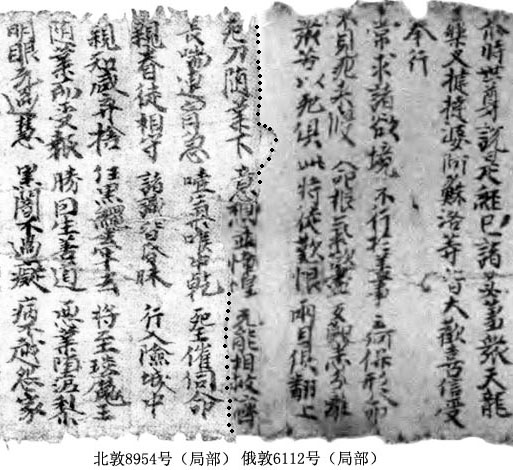 尒時世尊說是經已諸苾芻眾天龍
藥叉揵闥婆阿蘇洛等皆大歡喜信受
奉行
常求諸欲境 不行於善事 云何保形命
不見死來侵 命根氣欲盡 支節悉分離
眾苦以死俱 此時徒歎恨 兩目俱翻上
死刀隨業下 意想並慞惶 无能相救濟
長喘連胷急 噎氣喉中乾 死王催伺命
親眷徒相守 諸識皆昏昧 行入險城中
親知咸弃捨 任黑繩牽去 將至琰魔王
隨業而受報 勝因生善道 惡業墮泥犁
明眼无過慧 黑闇不過癡 病不越怨家
北敦8954号（局部） 俄敦6112号（局部）